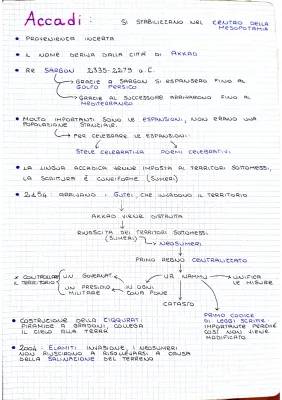 Accadi: SI STABILIZZANO NEL CENTRO DELLA
MESOPOTAMIA
• PROVENIENZA INCERTA
• IL NOME DERIVA DALLA CITTÀ DI AKKAD
• RE SARGON 2335-2279 a.C.
→ GRACIE A SARGON SI ESPANSERO FINO AL
GOLFO PERSICO
→ GRACIE AL SUCCESSORE ARRIVARONO FINO AL
MEDITERRANEO
• MOLTO IMPORTANTI SONO LE ESPANSIONI, NON ERANO UNA
POPOLAZIONE STANZIALE.
→ PER CELEBRARE LE ESPANSIONI:
STELE CELEBRATIVA POEMI CELEBRATIVI.
• LA LINGUA ACCADICA VENNE IMPOSTA AI TERRITORI SOTTOMESSI,
LA SCRITTURA È CUNEIFORME (SUMERI)
• 2154: ARRIVANO I GUTEI, CHE INVADONO IL TERRITORIO
AKKAD VIENE DISTRUTTA
RINASCITA DEI TERRITORI SOTTOMESSI
(SUMERI) → NEOSUMERI
PRIMO REGNO CENTRALIZZATO
× CONTROLLARE
IL TERRITORIO
UN GOVERNAT.
UN PRESIDIO
MILITARE
IN OGNI
UR NAMMU → UNIFICA
LE MISURE
CATASTO
PRIMO CODICE
DI LEGGI SCRITTE:
IMPORTANTE PERCHÉ
COSÌ NON VIENE
MODIFICATO
• COSTRUZIONE DELLA ZIQQURAT:
PIRAMIDE A GRADONI, COLLEGA
IL CIELO ALLA TERRA
• 2004: ELAMITI INVASIONE, I NEOSUMERI
NON RIUSCIRONO A RISOLLEVARSI A CAUSA
DELLA SALINAZIONE DEL TERRENO